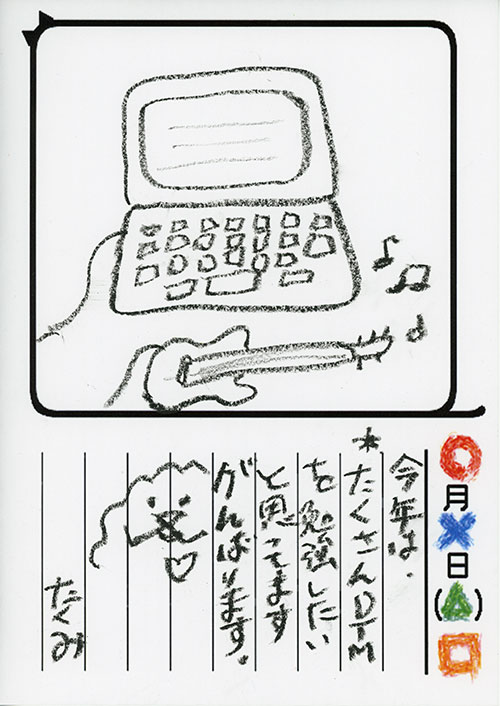 ○月×日(△)□
今年は、
*たくさんDTM
を勉強したい
と思ってます
がんばります。
たくみ